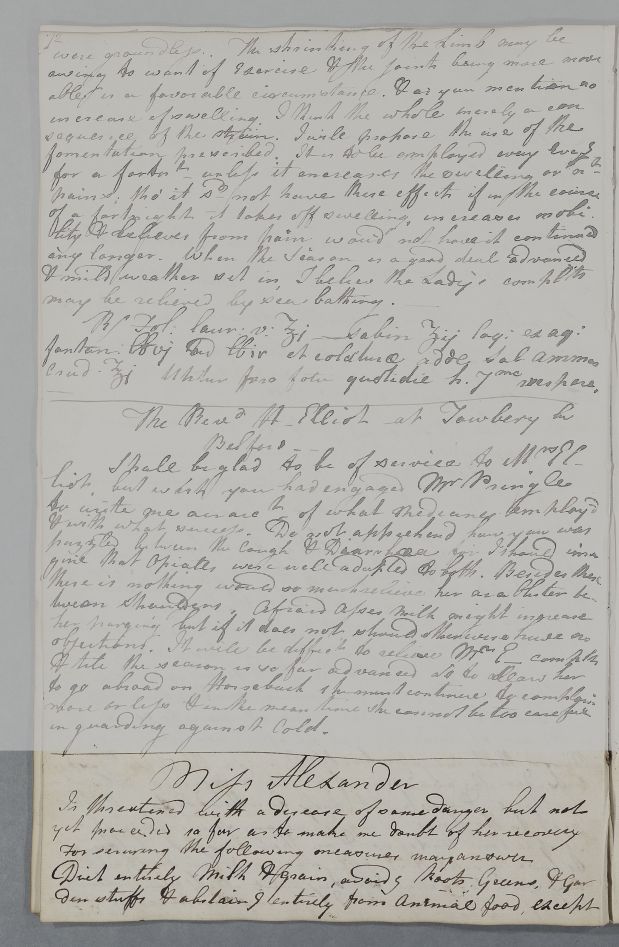 were groundless. The shrinking of the Limb may be
owing to want of Exercise & the joints being more move
able is a favorable circumstance. & as you mention no
increase of swelling. I think the whole merely a con
sequence of the strain. I will propose the use of the
fomentation prescribed. It is to be employed every
for a fortnt. unless it increases the swelling or
pain; tho' it sd. not have these effects if in the course
of a fortnight it takes off swelling, increases mobi-
lity & relieves from pain, would not have it continued
any longer. When the Season is a good deal advanced
& mild weather set in, I believe the Lady's complts
may be relieved by sea bathing.
Rx Fol. laur. ʒj Sabin ʒij coq: ex aq:
fontan: lbvj ad lbiv et colaturae adde sal ammon
Crud: ʒj Utitur pro fotu quotidie h. 7me vespere.
The Revd. H. Elliot at Towbery by
Belford
I shall be glad to be of service to Mrs El-
liot, but wish you had engaged Mr Pringle
to write me an acct. of what Medicines employ'd
& with what success. Do not apprehend how you was
puzzled between the Cough & Diarrhoea for I should ima
gine that Opiates were well adapted to both. Besides these
there is nothing would so much relieve her as a blister be-
tween Shoulders. Afraid Asses Milk might increase
her purging but if it does not should otherwise have no
objections. It will be difficult to relieve Mrs E complts
& till the season is so far advanced as to allow her
to go abroad on Horseback she must continue to complain
more or less & in the mean time she cannot be too careful
in guarding against Cold.
Miss Alexander
Is threatened with a disease of some danger but not
yet proceeded so far as to make me doubt of her recovery
For securing the following measures may answer
Diet entirely Milk & grain, avoidg Roots, Greens, & Gar
den stuffs & abstaing entirely from Animal food, except